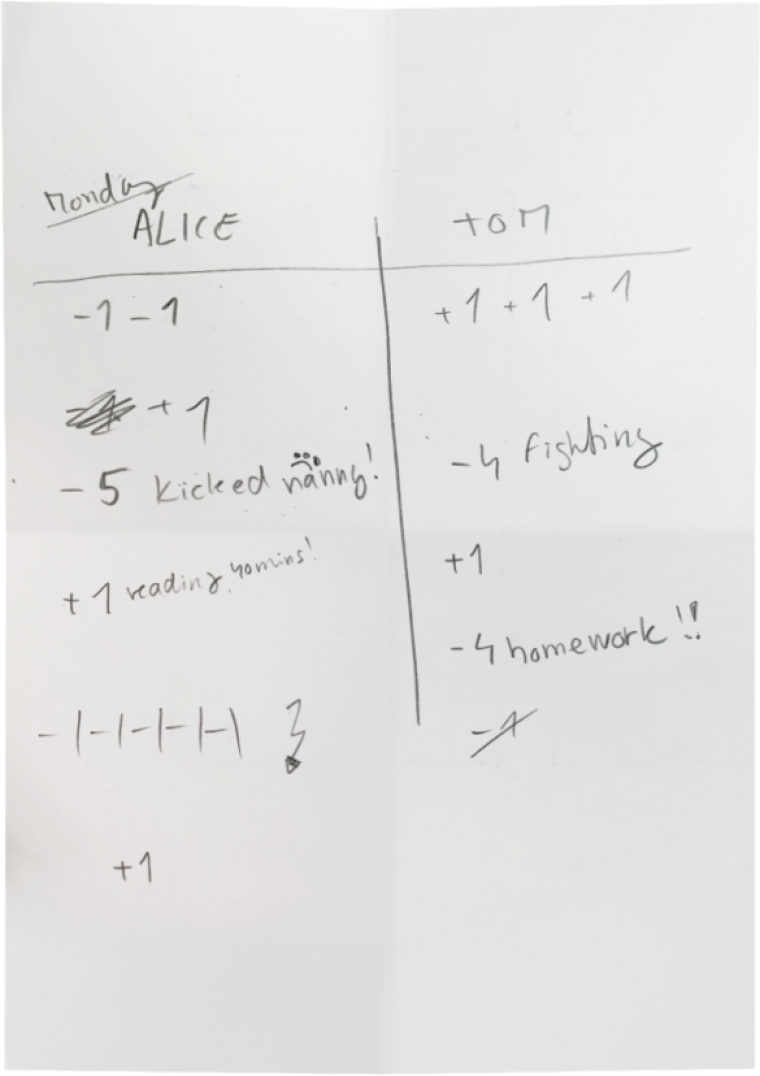 Monday
ALICE
TOM
-1 -1
+1 +1 +1
-1 +1
-5 kicked nanny!
-4 fighting
+1 reading 40mins!
+1
-4 homework!!
-1-1-1-1-1
-1
+1